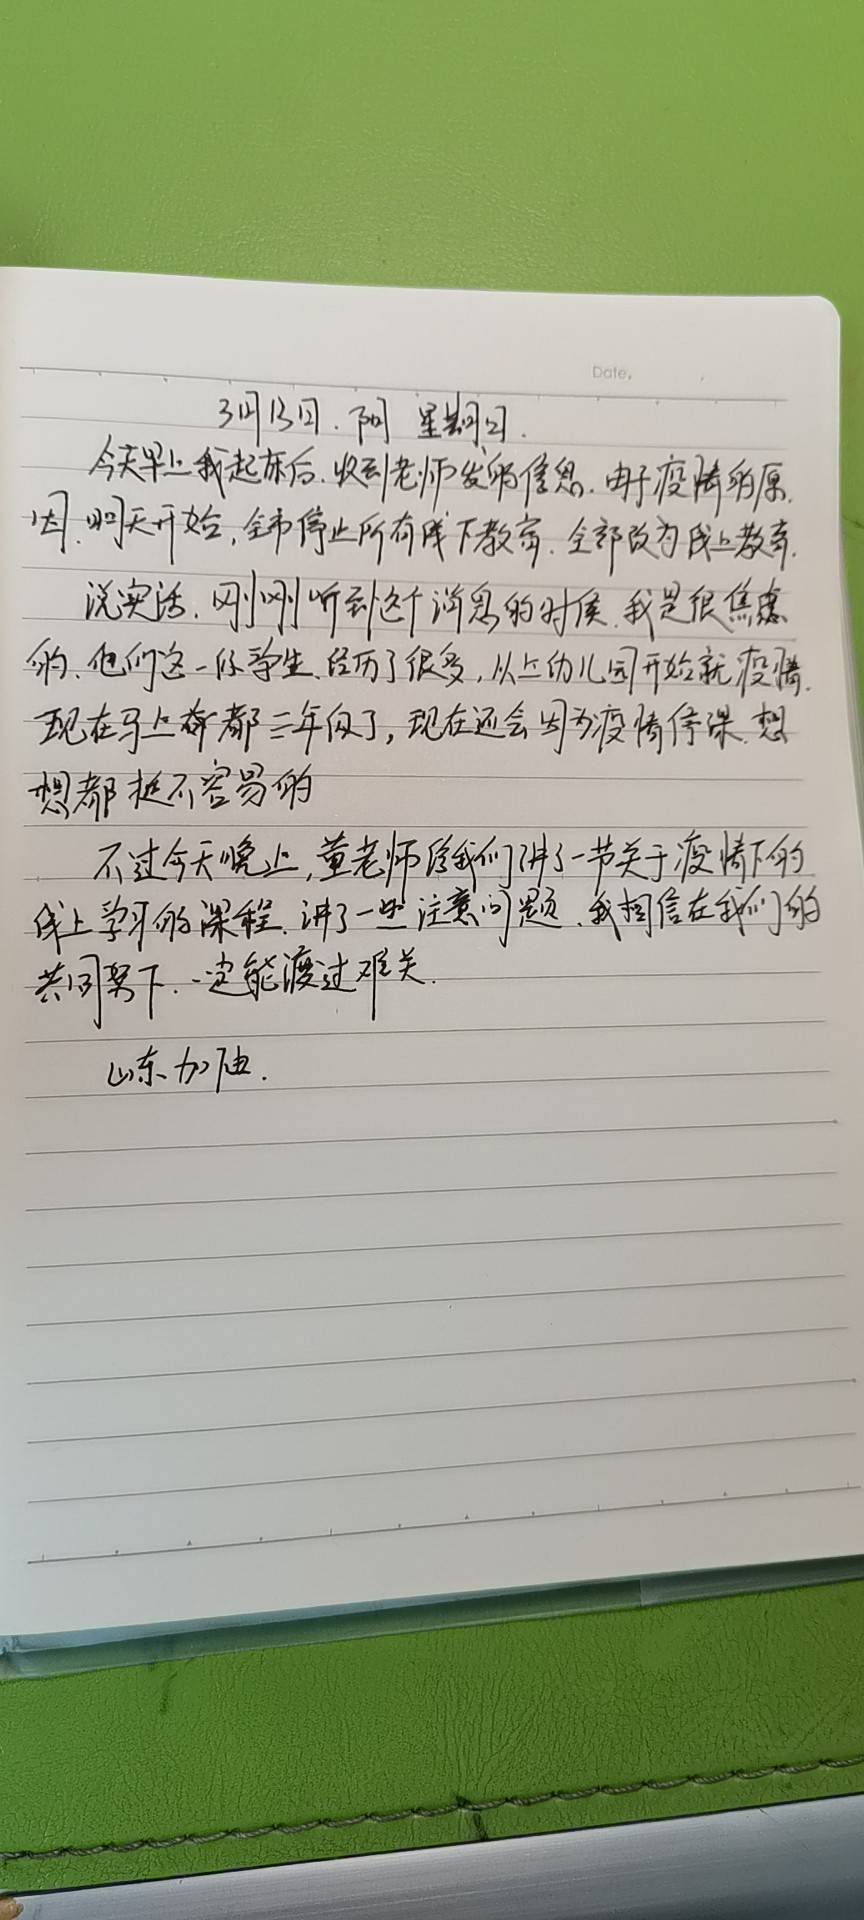 Date.
3月13日.阳 星期日.
今天早上我起床后.收到老师发的信息.由于疫情的原.
因.明天开始,全市停止所有线下教育.全部改为线上教育.
说实话.刚刚听到这个消息的时候.我是很焦虑
的.他们这一伍学生.经历了很多,从上幼儿园开始就疫情.
现在马上都三年级了,现在还会因为疫情停课.想
想都挺不容易的
不过今天晚上,董老师给我们讲了一节关于疫情下的
线上学习的课程.讲了一些注意问题.我相信在我们的
共同努下.一定能渡过难关.
山东加油.